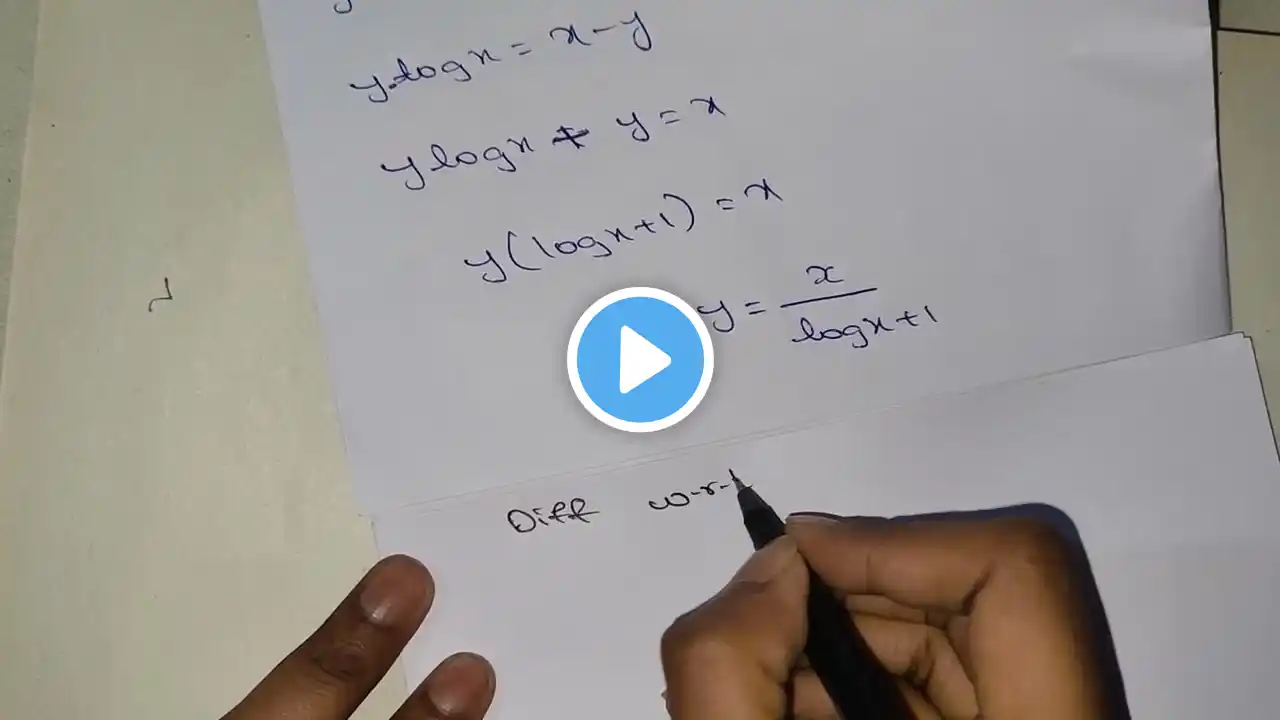 y.logx = x-y
ylogx + y = x
y(logx+1) = x
y = x / logx+1
Diff w.r.t